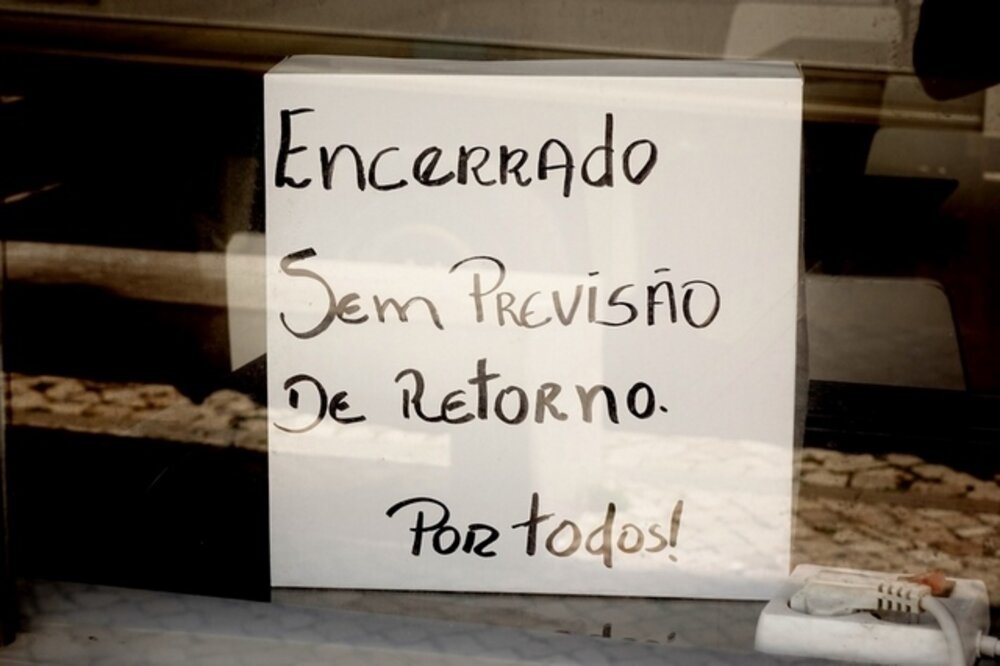 Encerrado
Sem Previsão
De Retorno.
Por todos!